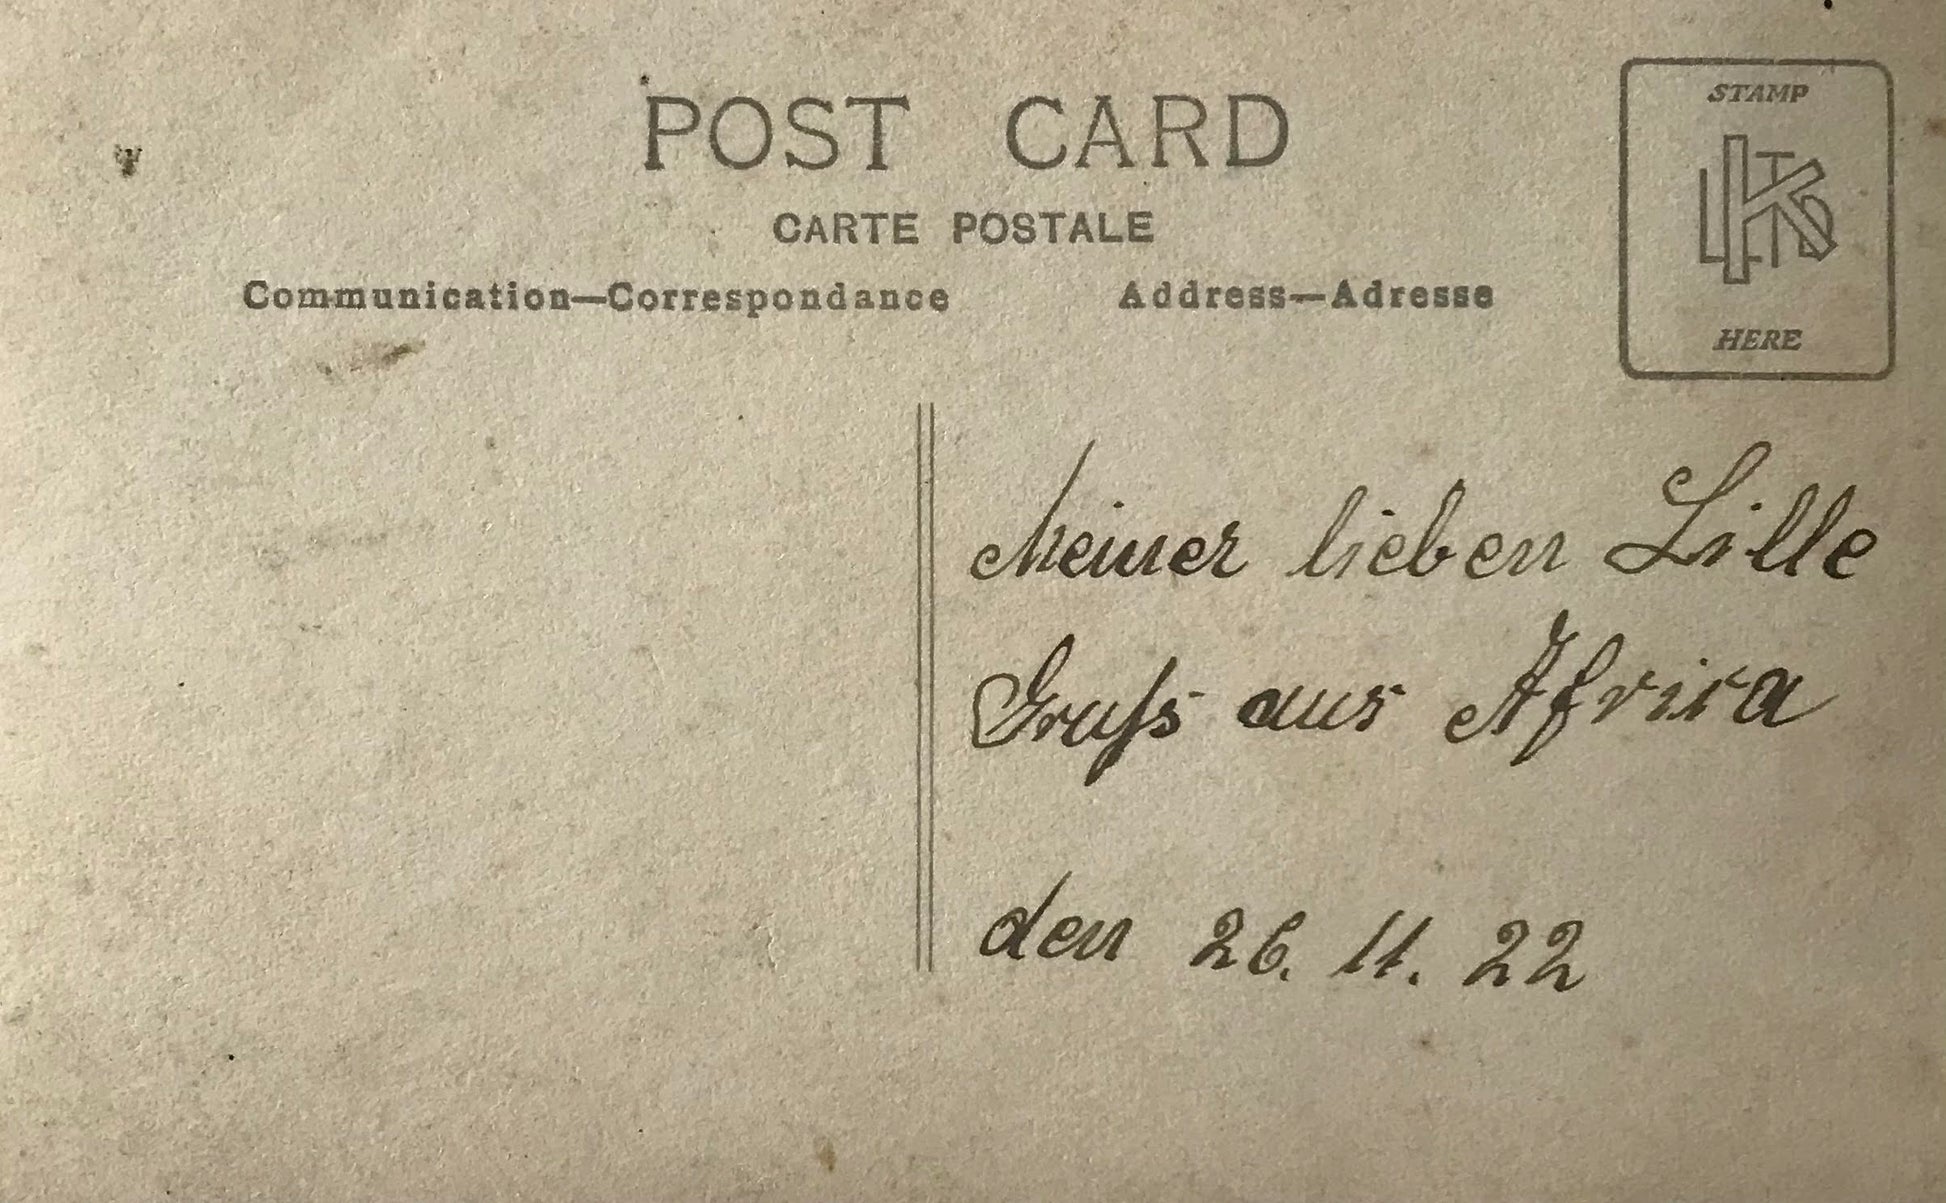 POST CARD
CARTE POSTALE
Communication—Correspondance
Address—Adresse
STAMP
HERE
Meiner lieben Lille
Gruſs aus Africa
den 26. 11. 22